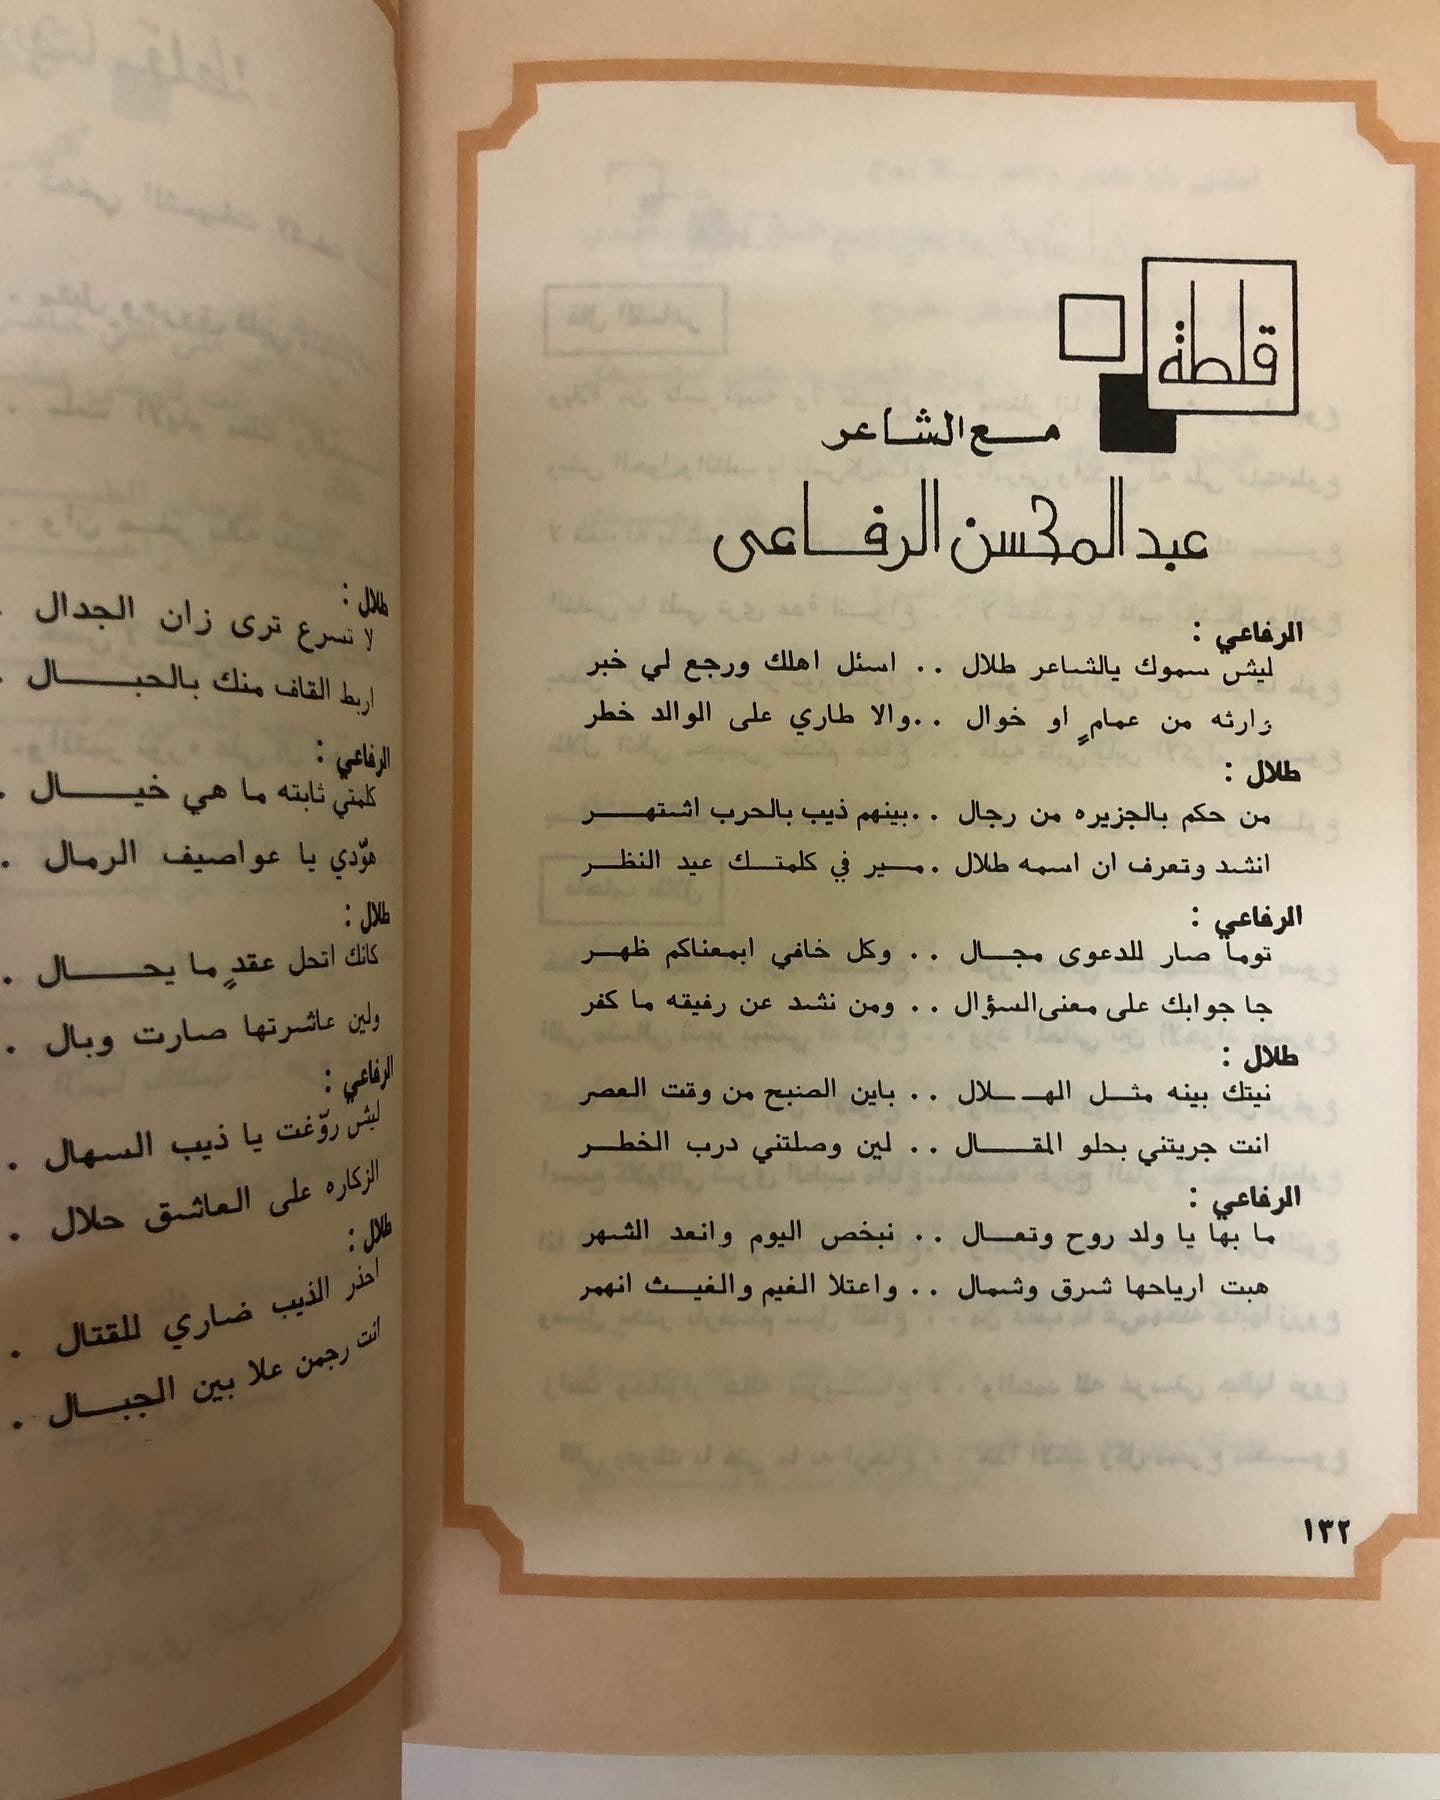 قلطة
مع الشاعر
عبد المحسن الرفاعي
الرفاعي :
ليش سموك يالشاعر طلال . . اسئل اهلك ورجع لي خبر
وارثه من عمامٍ او خوال . . والا طاري على الوالد خطر
طلال :
من حكم بالجزيره من رجال . . بينهم ذيب بالحرب اشتهر
انشد وتعرف ان اسمه طلال . مير في كلمتك عيد النظر
الرفاعي :
توما صار للدعوى مجال . . وكل خافي ابمعناكم ظهر
جا جوابك على معنى السؤال . . ومن نشد عن رفيقه ما كفر
طلال :
نيتك بينه مثل الهلال . . باين الصنبح من وقت العصر
انت جريتني بحلو المقال . . لين وصلتني درب الخطر
الرفاعي :
ما بها يا ولد روح وتعال . . نبخص اليوم وانعد الشهر
هبت ارياحها شرق وشمال . . واعتلا الغيم والغيث انهمر
١٣٢
طلال :
لا تسرع ترى زان الجدال .
اربط القاف منك بالحبال .
الرفاعي :
كلمتي ثابته ما هي خيال .
هوّدي يا عواصيف الرمال .
طلال :
كانك اتحل عقدٍ ما يحال .
ولين عاشرتها صارت وبال .
الرفاعي :
ليش روّغت يا ذيب السهال .
الزكاره على العاشق حلال .
طلال :
احذر الذيب ضاري للقتال .
انت رجمن علا بين الجبال .